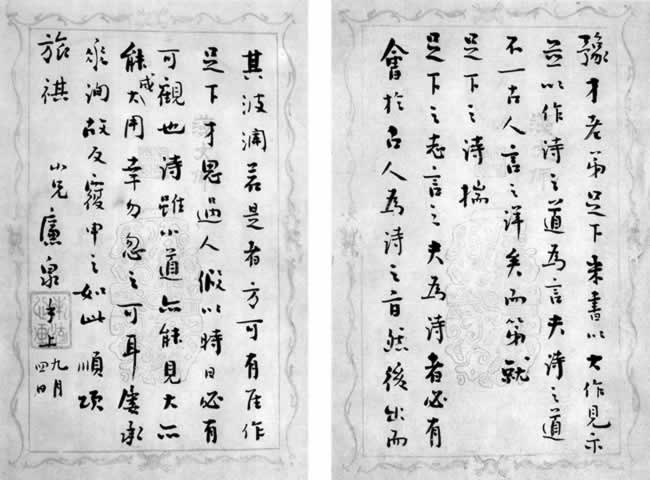 豫才君弟足下來書以大作見示
並以作詩之道為言夫詩之道
不一古人言之詳矣而第就
足下之詩揣
足下之志言之夫為詩者必有
會於古人為詩之旨然後出而
其波瀾若是者方可有座作
足下才思過人假以時日必有
可觀也詩雖小道亦能見大亦
能成大用幸勿忽之可耳屢承
垂詢故反覆申之如此順頌
旅祺
小兄廉泉書上
九月
四日